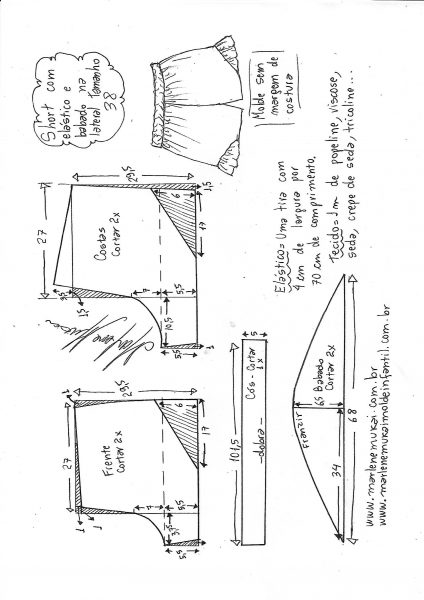 Short com
elástico e
babado na
lateral Tamanho
38
Molde sem
margem de
costura
Elástico = Uma tira com
4 cm de largura por
70 cm de comprimento.
Tecido = 1m de popeline, viscose,
seda, crepe de seda, tricoline...
27
29,5
1,5
6
17
Costas
Cortar 2x
3,5
1,5
7
5,5
10,5
5,5
1
27
29,5
1
6
17
Frente
Cortar 2x
1
1
7
5,5
3,5
5,5
101,5
5
Cós - Cortar
1x
- dobra -
Franzir
6,5
Babado
Cortar 2x
34
68
www.marlenemukai.com.br
www.marlenemukaimoldeinfantil.com.br